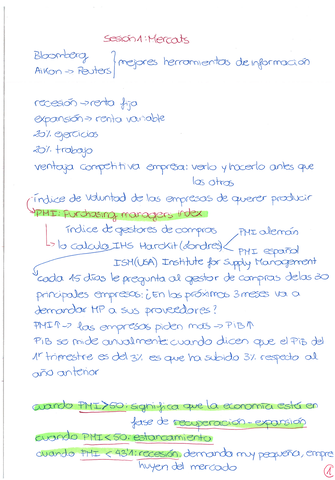 Sesión 1: Mercats
Bloomberg
Aikon → Reuters
mejores herramientas de información
recesión → renta fija
expansión → renta variable
20% ejercicios
20% trabajo
ventaja competitiva empresa: verlo y hacerlo antes que
los otros
índice de voluntad de las empresas de querer producir
PMI: Purchasing managers index
índice de gestores de compras
lo calcula IHS Harckit (Londres)
PMI alemán
PMI español
ISM (USA) Institute for Supply Management
cada 15 días le pregunta al gestor de compras de las 30
principales empresas: ¿En los próximos 3 meses va a
demandar MP a sus proveedores?
PMI ↑ → las empresas piden más → PIB ↑
PIB so mide anualmente cuando dicen que el PIB del
1r trimestre es del 3% es que ha subido 3% respecto al
año anterior
cuando PMI > 50: significa que la economía está en
fase de recuperación - expansión
cuando PMI < 50: estancamiento
cuando PMI < 43%: recesión, demanda muy pequeña, empre
huyen del mercado
1